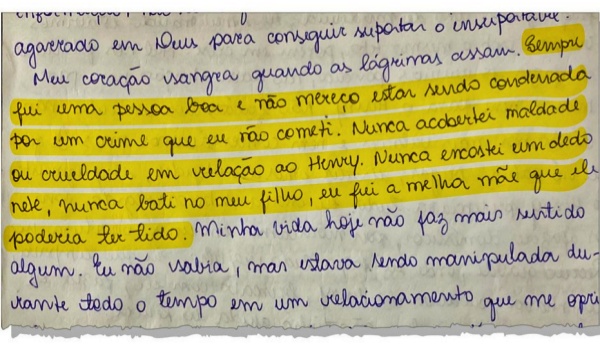 agarrado em Deus para conseguir suportar o insuportável.
Meu coração sangra quando as lágrimas assam. Sempre
fui uma pessoa boa e não mereço estar sendo condenada
por um crime que eu não cometi. Nunca acobertei maldade
ou crueldade em relação ao Henry. Nunca encostei um dedo
nele, nunca bati no meu filho, eu fui a melhor mãe que ele
poderia ter tido. Minha vida hoje não faz mais sentido
algum. Eu não sabia, mas estava sendo manipulada du-
rante todo o tempo em um relacionamento que me opri